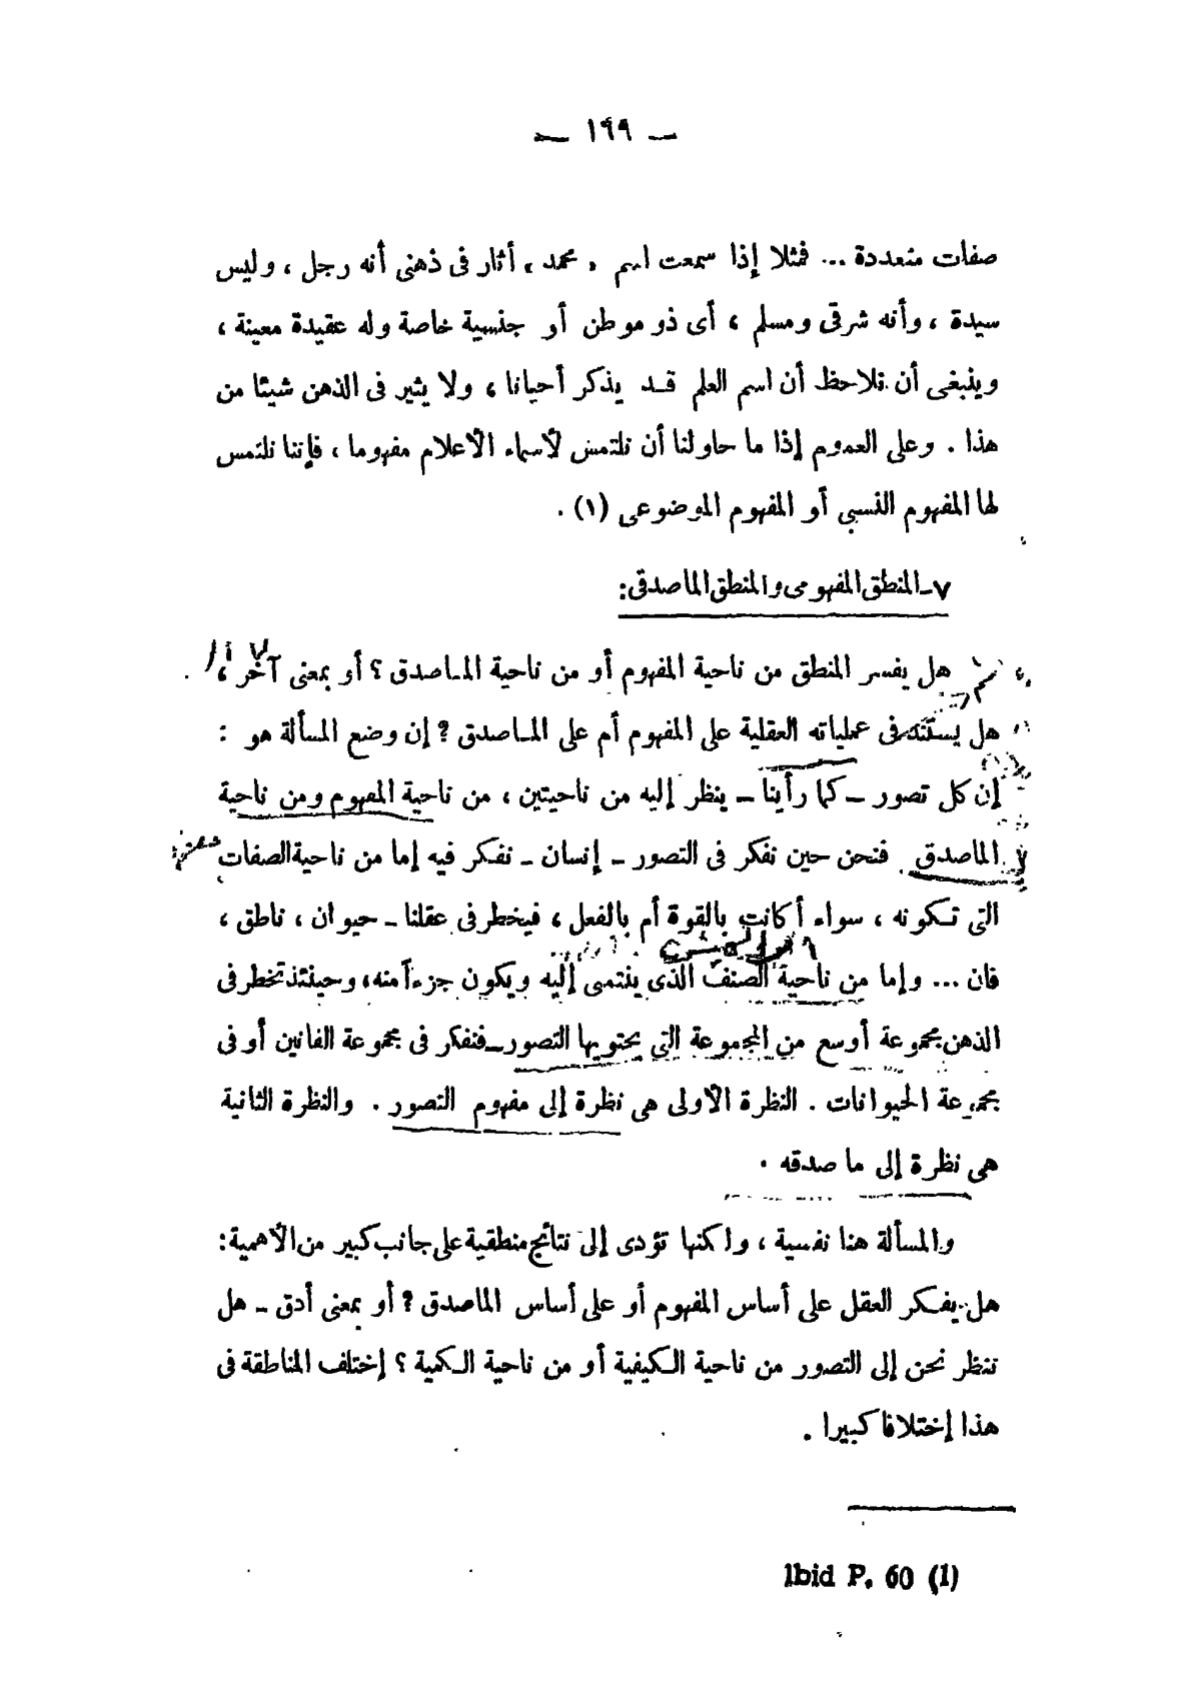 — ١٦٩ —
صفات متعددة ... فمثلا إذا سمعت اسم « محمد » أثار فى ذهنى أنه رجل ، وليس
سيدة ، وأنه شرقى ومسلم ، أى ذو موطن أو جنسية خاصة وله عقيدة معينة ،
وينبغى أن نلاحظ أن اسم العلم قد يذكر أحيانا ، ولا يثير فى الذهن شيئا من
هذا . وعلى العموم إذا ما حاولنا أن نلتمس لأسماء الأعلام مفهوما ، فإننا نلتمس
لها المفهوم النسبى أو المفهوم الموضوعى (١) .
٧ـ المنطق المفهومى والمنطق الماصدقى :
هل يفسر المنطق من ناحية المفهوم أو من ناحية الماصدق ؟ أو بمعنى آخر ،
هل يستند فى عملياته العقلية على المفهوم أم على الماصدق ؟ إن وضع المسألة هو :
إن كل تصور ـ كما رأينا ـ ينظر إليه من ناحيتين ، من ناحية المفهوم ومن ناحية
الماصدق . فنحن حين نفكر فى التصور ـ إنسان ـ نفكر فيه إما من ناحية الصفات
التى تكونه ، سواء أكانت بالقوة أم بالفعل ، فيخطر فى عقلنا ـ حيوان ، ناطق ،
فان ... وإما من ناحية الصنف الذى ينتمى إليه ويكون جزءاً منه ، وحينئذ تخطر فى
الذهن مجموعة أوسع من المجموعة التى يحتويها التصور ـ فنفكر فى مجموعة الفانين أو فى
مجموعة الحيوانات . النظرة الأولى هى نظرة إلى مفهوم التصور . والنظرة الثانية
هى نظرة إلى ما صدقه .
والمسألة هنا نفسية ، ولكنها تؤدى إلى نتائج منطقية على جانب كبير من الأهمية :
هل يفكر العقل على أساس المفهوم أو على أساس الماصدق ؟ أو بمعنى أدق ـ هل
ننظر نحن إلى التصور من ناحية الكيفية أو من ناحية الكمية ؟ إختلف المناطقة فى
هذا إختلافا كبيرا .
Ibid P. 60 (1)